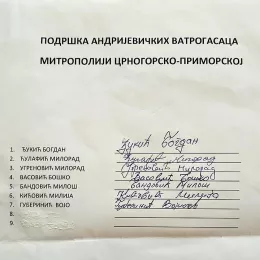 ПОДРШКА АНДРИЈЕВИЧКИХ ВАТРОГАСАЦА
МИТРОПОЛИЈИ ЦРНОГОРСКО-ПРИМОРСКОЈ
1. ЂУКИЋ БОГДАН Ђукић Богдан
2. ЂУЛАФИЋ МИЛОРАД Ђулафић Милорад
3. УГРЕНОВИЋ МИЛОРАД Угреновић Милорад
4. ВАСОВИЋ БОШКО Васовић Бошко
5. БАНДОВИЋ МИЛОШ Бандовић Милош
6. КИЧОВИЋ МИЛИЈА
7. ГУБЕРИНИЋ ВОЈО
8.
9.